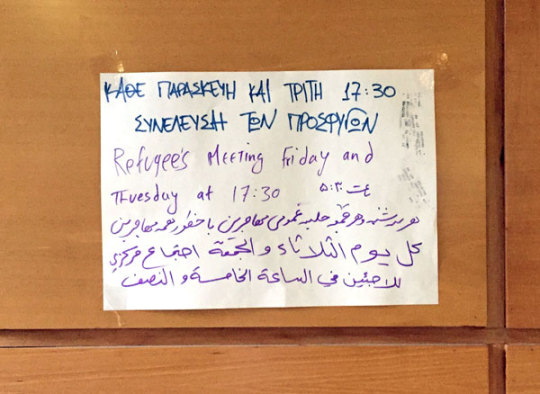 ΚΑΘΕ ΠΑΡΑΣΚΕΥΗ ΚΑΙ ΤΡΙΤΗ 17:30
ΣΥΝΕΛΕΥΣΗ ΤΩΝ ΠΡΟΣΦΥΓΩΝ
Refugee's Meeting Friday and
Tuesday at 17:30 ۵:۳۰
عمومی مهاجرین با حضور همه مهاجرین
كل يوم الثلاثاء والجمعة اجتماع مركزي
للاجئين في الساعة الخامسة و النصف